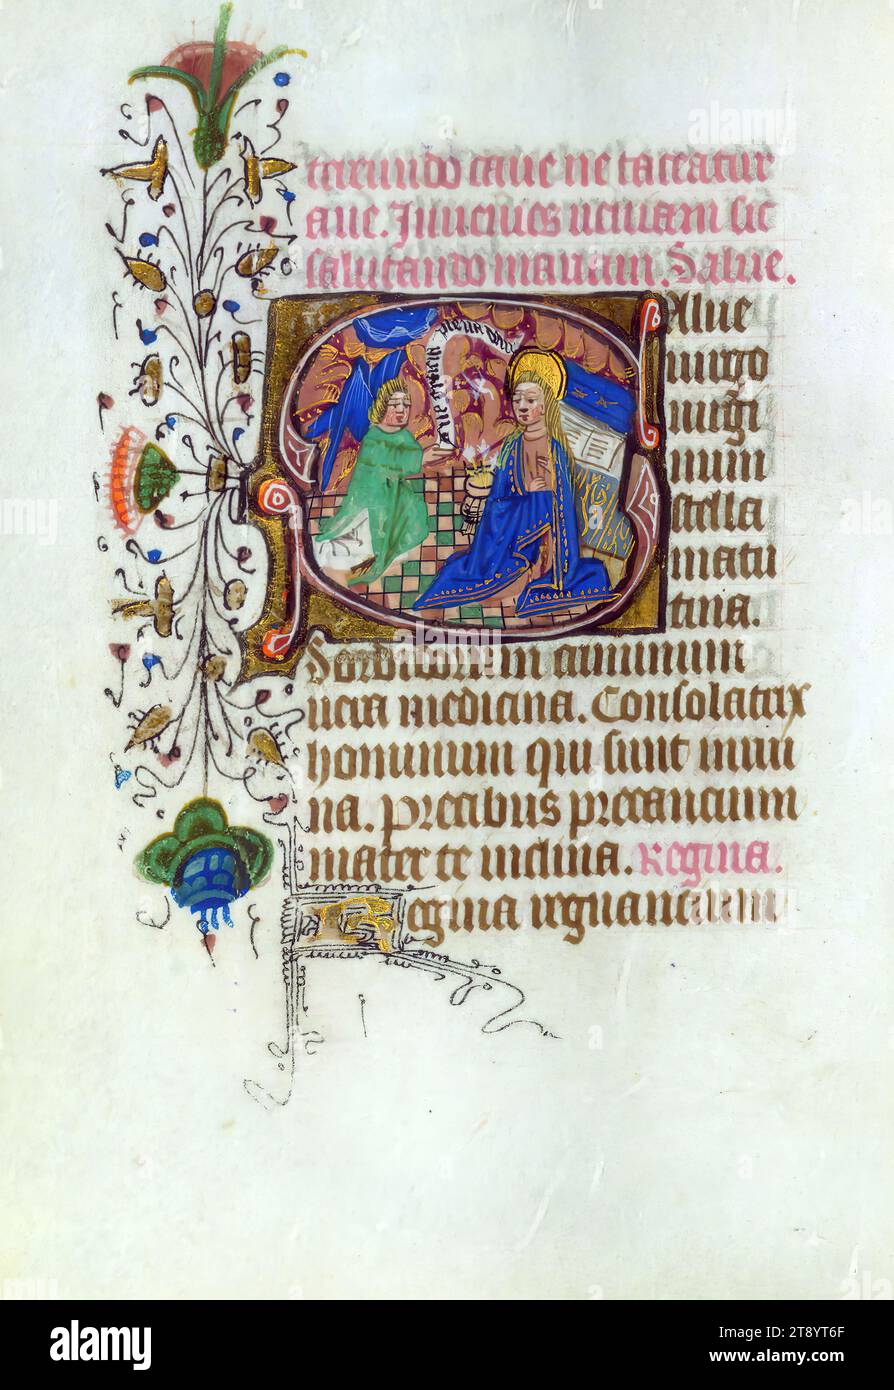 tereundo caue ne taceatur
aue. Inuenies ueniam sic
salutando mariam. Salue.
alue
uirgo
uirgi
num
stella
matu
tina.
Sorditorum criminum
uera medicina. Consolatrix
hominum qui sunt in rui
na. Precibus precantium
mater te inclina. Regina.
egina regnantium
alamy
Image ID: 2T8YT6F
www.alamy.com